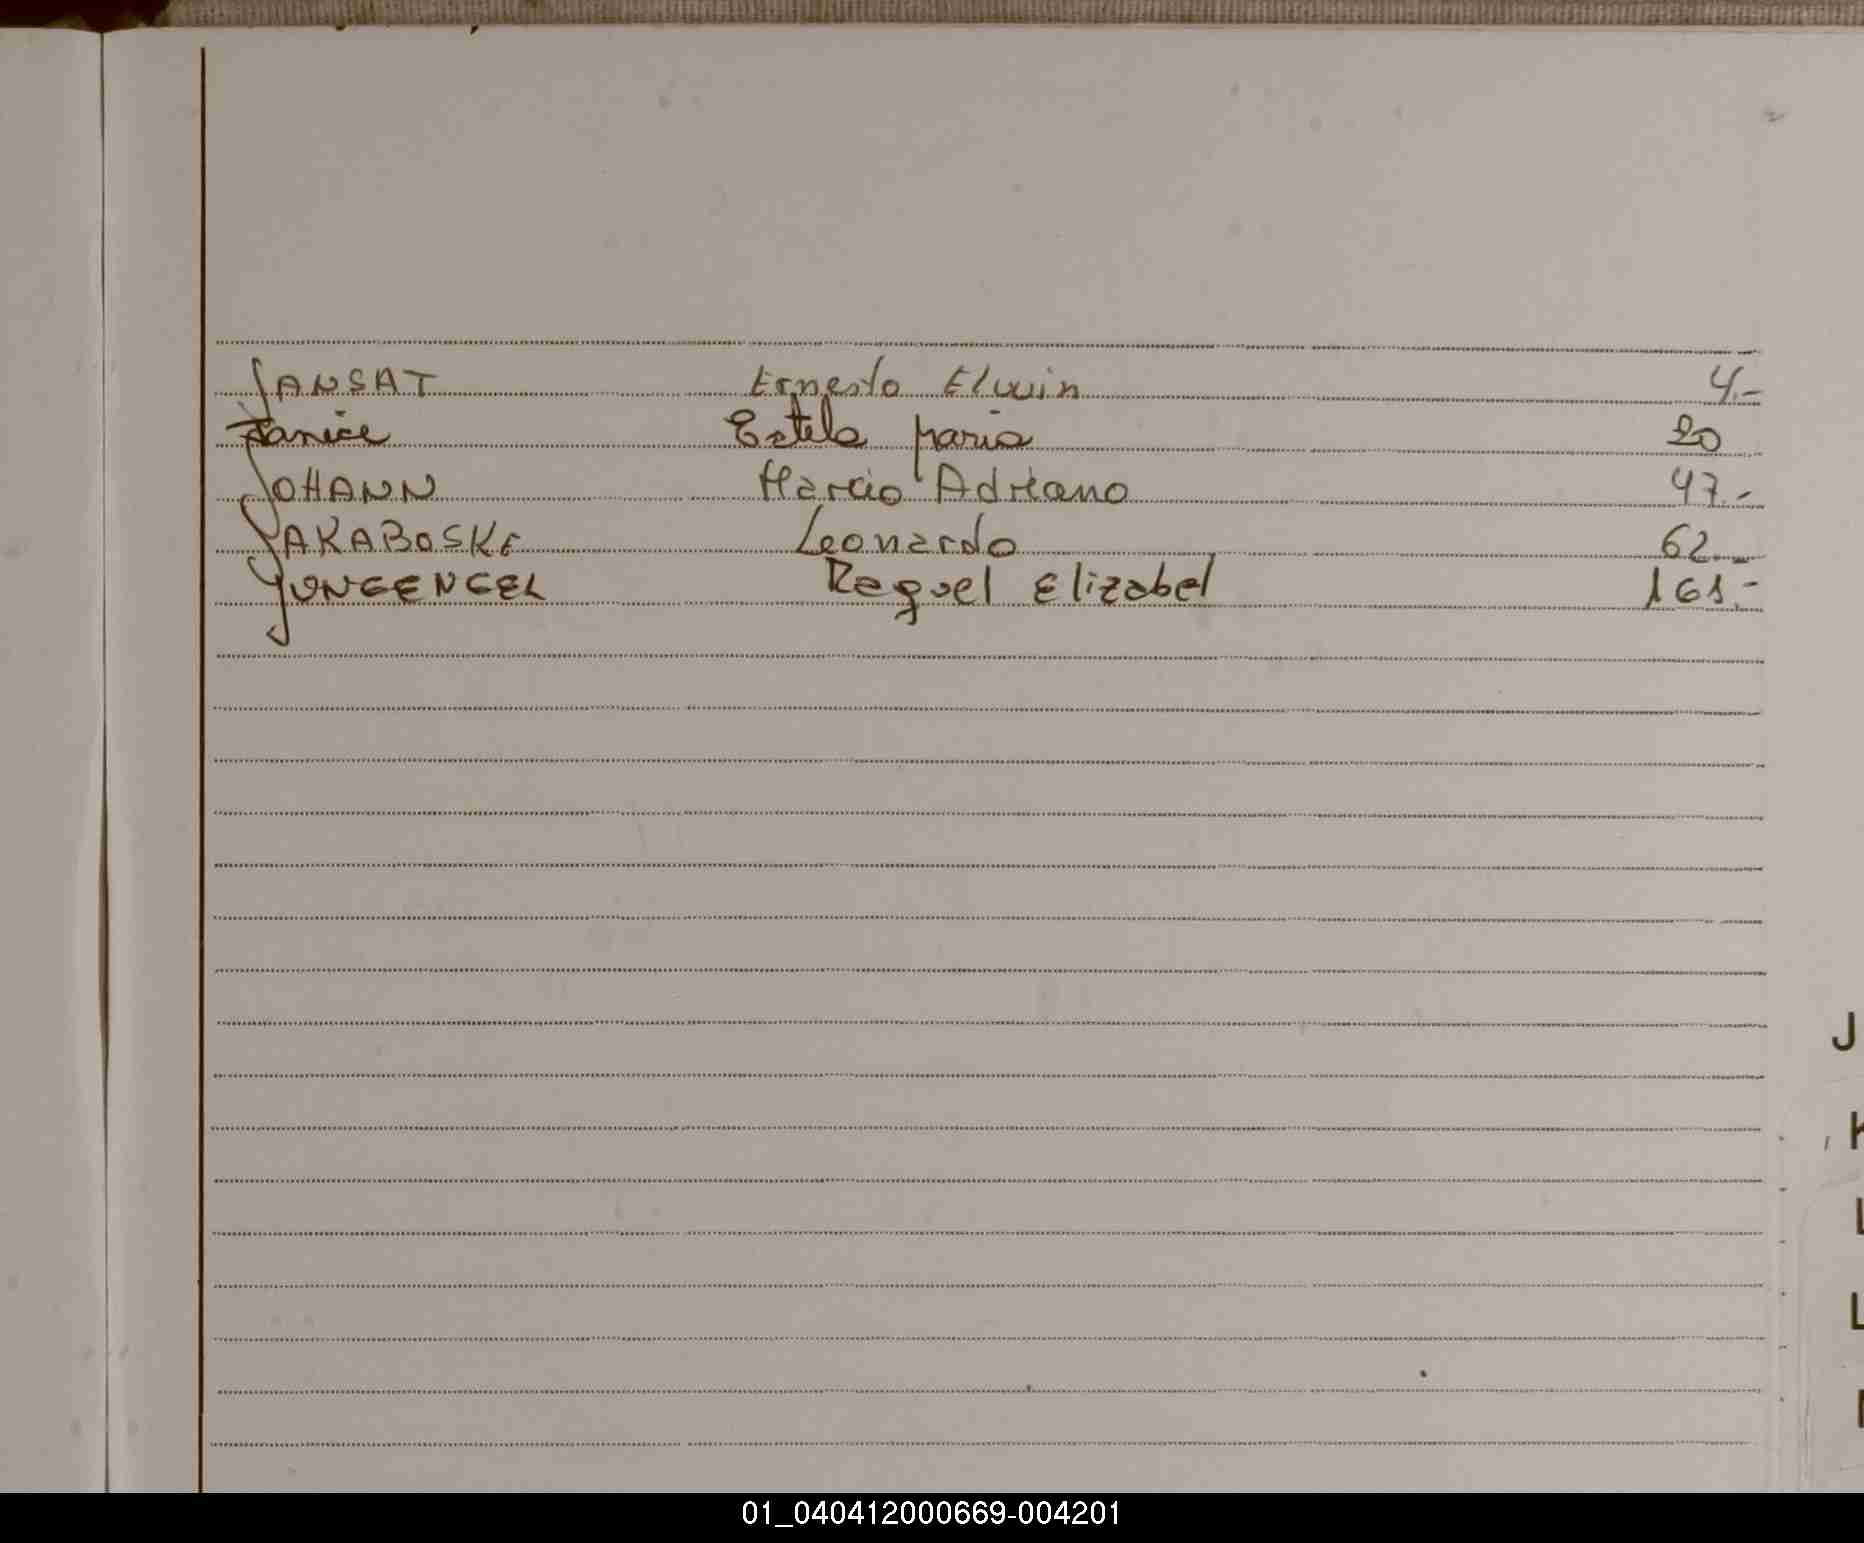 JANSAT Ernesto Elwin 4.-
Janice Estela Maria 20
JOHANN Marcio Adriano 47.-
JAKABOSKE Leonardo 62.-
JUNGENGEL Raquel Elizabel 161.-
J
K
L
L
01_040412000669-004201